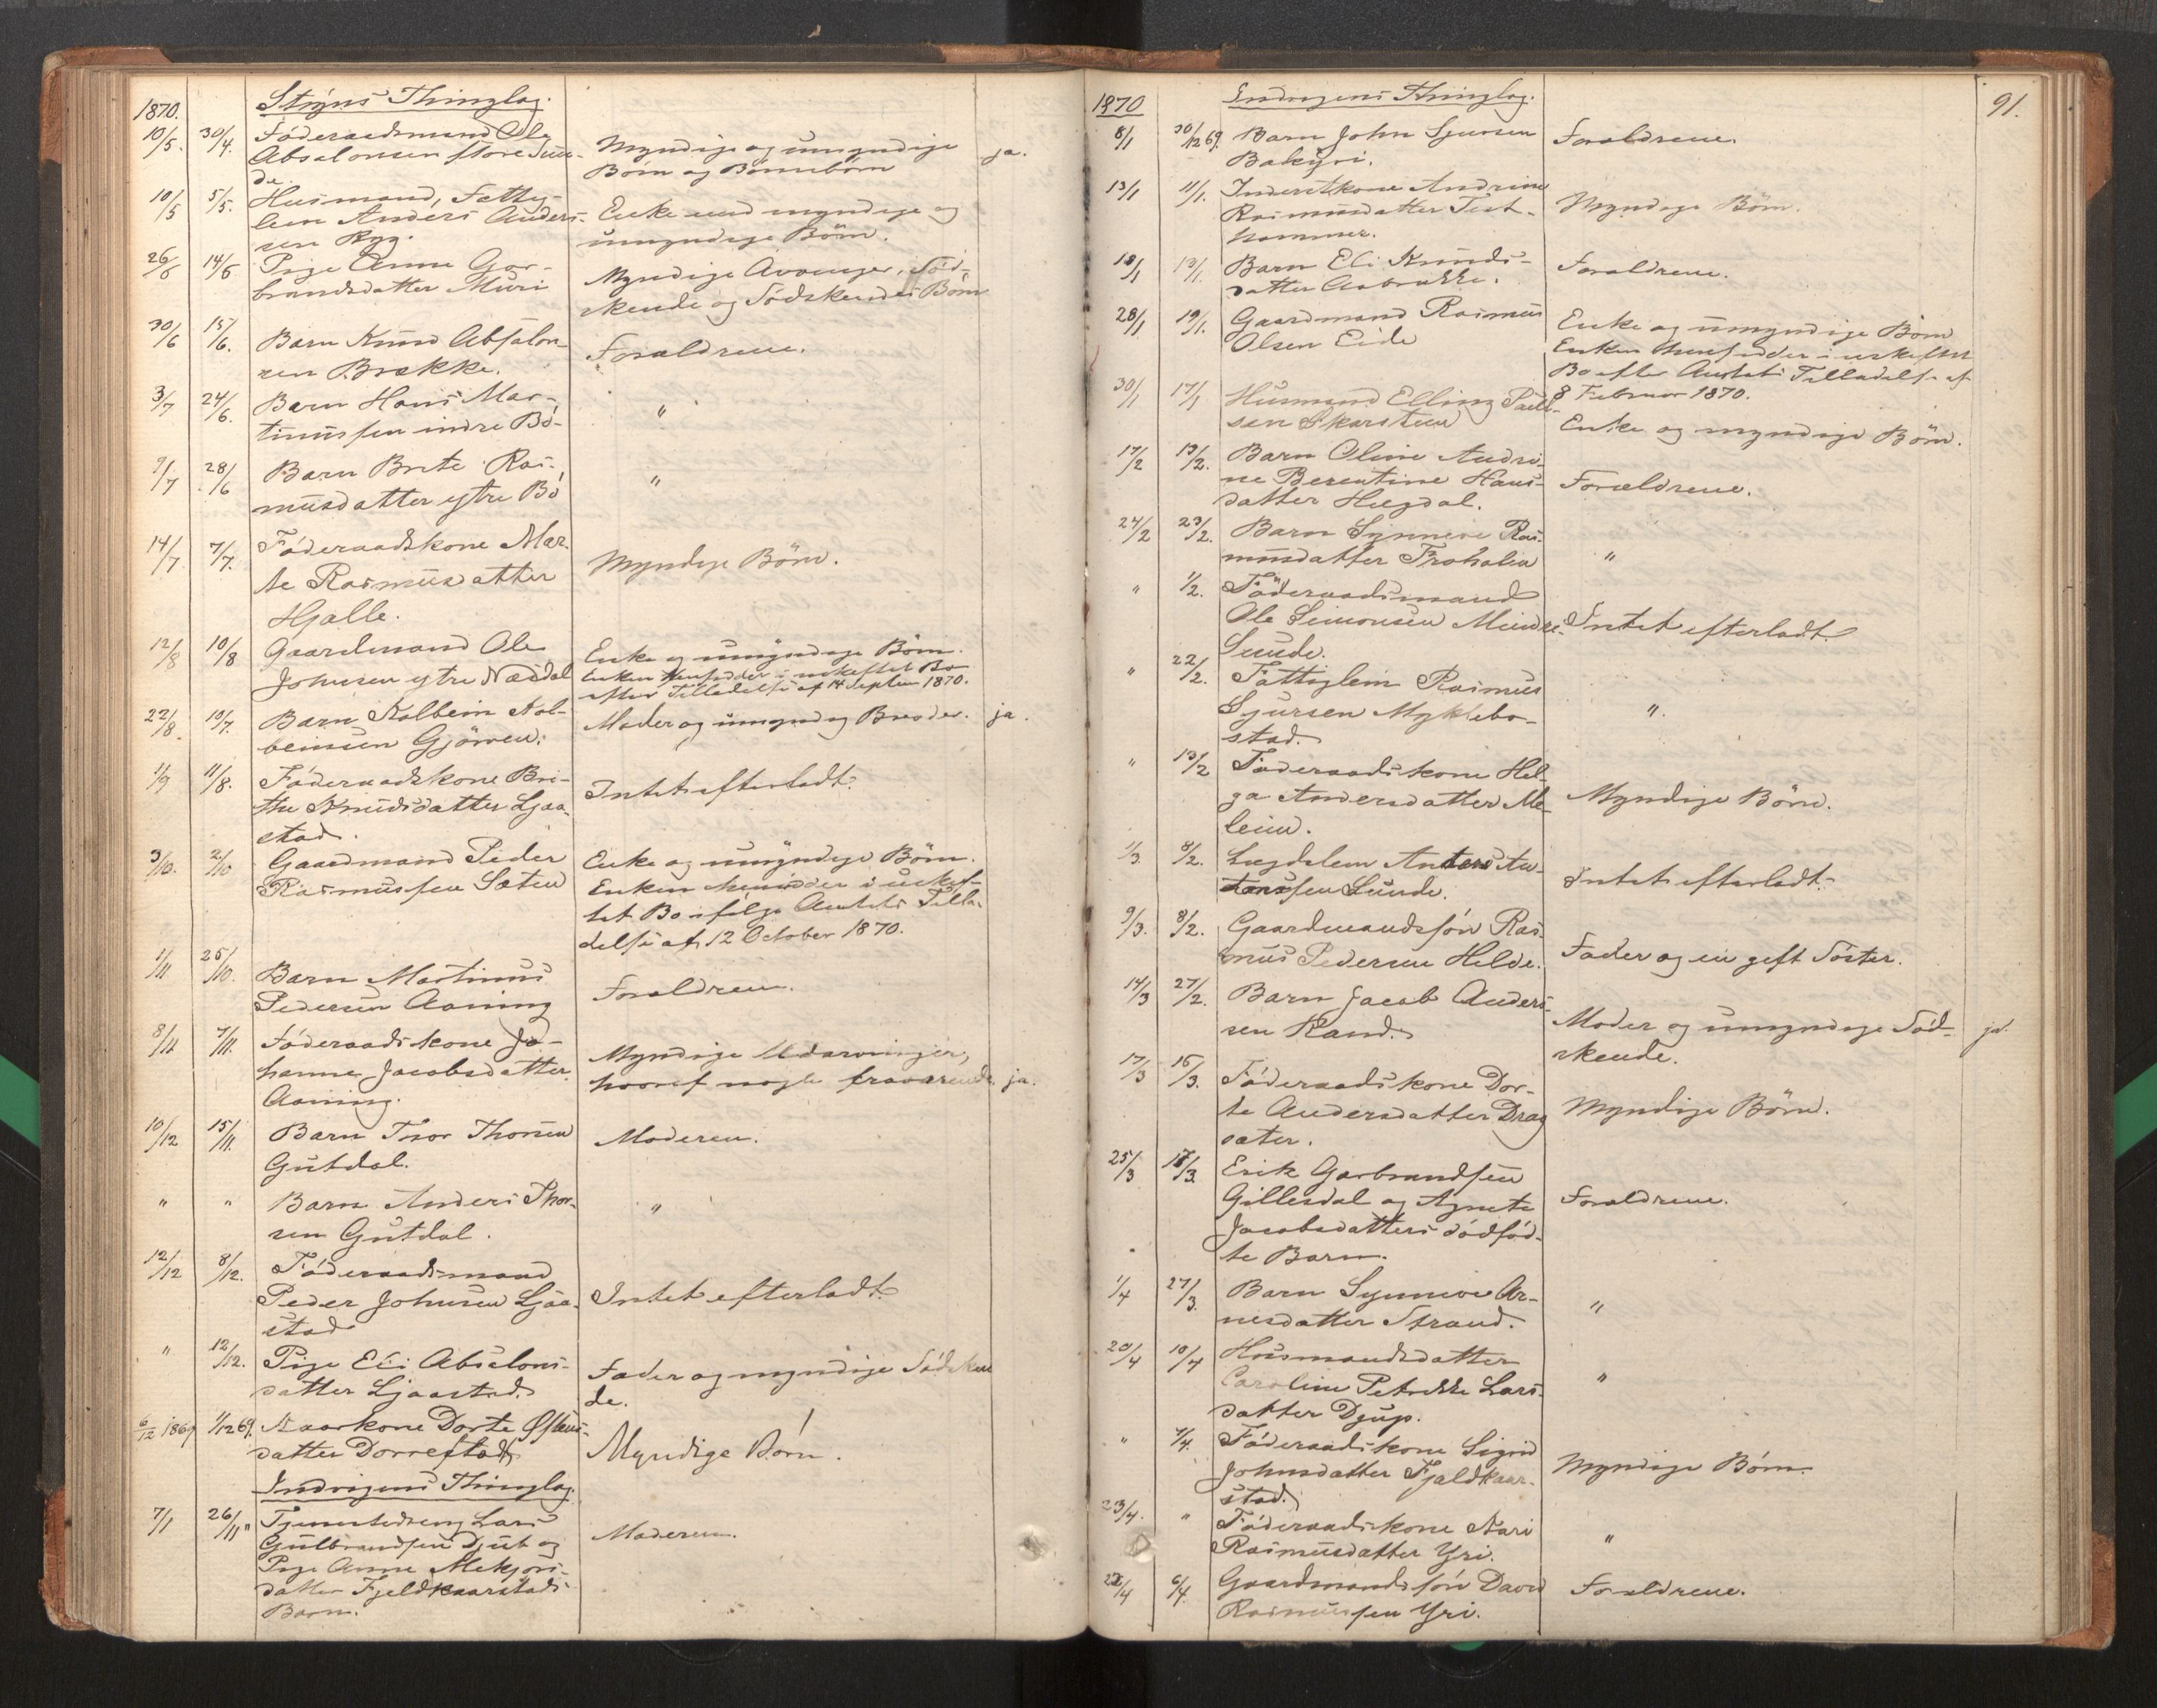 1870.
Stryns Thinglag.
10/5. 30/4. Föderaadsmand Ole
Absalonsen store Sun-
de.
Myndige og umyndige
Börn og Börnebörn
ja.
10/5 5/5. Husmand, Fattig-
lem Anders Anders-
sen Ryg.
Enke med myndige og
umyndige Börn.
26/6 14/6 Pige Anne Gar-
brandsdatter Muri
Myndige Arvinger, Söd-
skende og Södskendes Börn
30/6 15/6. Barn Knud Absalon-
sen Brække.
Forældrene.
3/7 24/6. Barn Hans Mar-
tinussen indre Bö-
"
9/7 28/6 Barn Brite Ras-
musdatter ytre Bö
"
14/7 7/7. Föderaadskone Mar-
te Rasmusdatter
Hjalle.
Myndige Börn.
12/8 10/8 Gaardmand Ole
Johnsen ytre Næsdal
Enke og umyndige Börn.
Enken hensidder i uskiftet Bo
efter Tilladelse af 14 Septem 1870.
22/8. 10/7. Barn Kolbein Kol-
beinsen Gjörven.
Moder og umyndig Broder.
ja.
1/9 11/8. Föderaadskone Bri-
the Knudsdatter Ljaa-
stad.
Intet efterladt.
3/10. 2/10 Gaardmand Peder
Rasmussen Sæten
Enke og umyndige Börn.
Enken hensidder i uskif-
tet Bo ifölge Amtets Tilla-
delse af 12 October 1870.
1/11 25/10. Barn Martinus
Pedersen Aaning
Forældrene.
8/11 7/11. Föderaadskone Jo-
hanne Jacobsdatter
Aaning.
Myndige Udarvinger,
hvoraf nogle fraværende
ja.
10/12 15/11. Barn Thor Thorsen
Gutdal.
Moderen.
" " Barn Anders Thor-
sen Gutdal.
"
12/12 8/12. Föderaadsmand
Peder Johnsen Ljaa-
stad
Intet efterladt.
" 12/12. Pige Eli Absalons-
datter Ljaastad.
Fader og myndige Södsken
de.
6/12 1869 1/12 69. Kaarkone Dorte Østeins-
datter Dorrestad
Myndige Børn.
Indvigens Thinglag.
7/1 26/11 " Tjenestedreng Lars
Gulbrandsen Djub og
Pige Anne Mekjørs-
datter Fjeldkaarstads
Barn.
Moderen.
91.
1870
Indvigens Thinglag.
8/1 30/12 69. Barn John Sjursen
Bakyri.
Forældrene.
13/1 11/1. Inderstkone Andrine
Rasmusdatter Tist-
hammer.
Myndige Börn.
18/1 12/1. Barn Eli Knuds-
datter Aabrække.
Forældrene.
28/1 19/1. Gaardmand Rasmus
Olsen Eide
Enke og umyndige Börn
Enken hensidder i uskiftet
Bo efter Amtets Tilladelse af
8 Februar 1870.
30/1 17/1 Husmand Elling Paul-
sen Skarsteen
Enke og myndige Börn.
17/2 13/2. Barn Oline Andri-
ne Berentine Hans-
datter Hægdal.
Forældrene.
24/2 23/2. Barn Synneve Ras-
musdatter Froholm
"
" 1/2. Föderaadsmand
Ole Simonsen Mindre-
Sunde.
Intet efterladt.
" 22/2. Fattiglem Rasmus
Sjursen Myklebo-
stad.
".
" 13/2 Föderaadskone Hel-
ga Andersdatter Me-
leim.
Myndige Börn.
1/3. 8/2. Lægdslem Anders An-
derssen Sunde.
Intet efterladt.
9/3. 8/2. Gaardmandssön Ras-
mus Pedersen Hilde.
Fader og en gift Söster.
14/3 27/2. Barn Jacob Anders-
sen Rand.
Moder og umyndige Söd-
skende.
ja.
17/3 16/3. Föderaadskone Dor-
te Andersdatter Drag
sæter.
Myndige Börn.
25/3 17/3. Erik Garbrandsen
Gillesdal og Agnete
Jacobsdatters dödföd-
te Barn.
Forældrene.
1/4 27/3. Barn Synneve Ar-
nesdatter Strand.
"
20/4 10/4 Husmandsdatter
Caroline Petrikke Lars-
datter Djup.
"
" 7/4. Föderaadskone Sigrid
Johnsdatter Fjeldkaar-
stad.
Myndige Börn.
23/4. " Föderaadskone Kari
Rasmusdatter Yri.
"
22/4 6/4. Gaardmandssön David
Rasmussen Yri.
Forældrene.